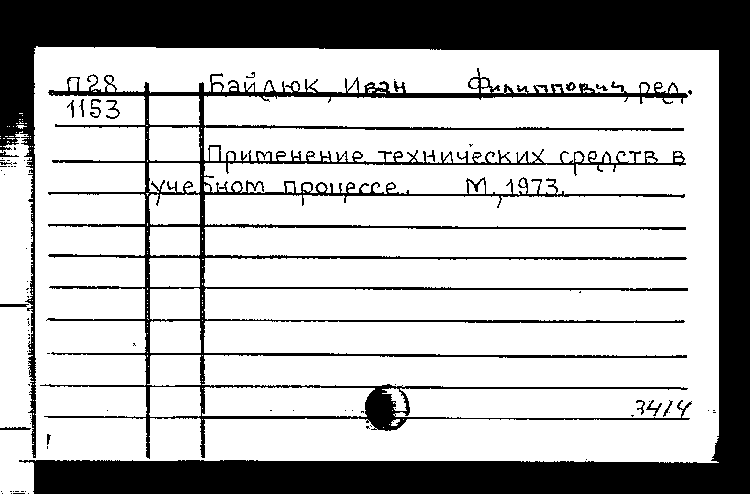 П28 Байдюк, Иван Филиппович, ред.
1153
Применение технических средств в
учебном процессе. М., 1973.
3414